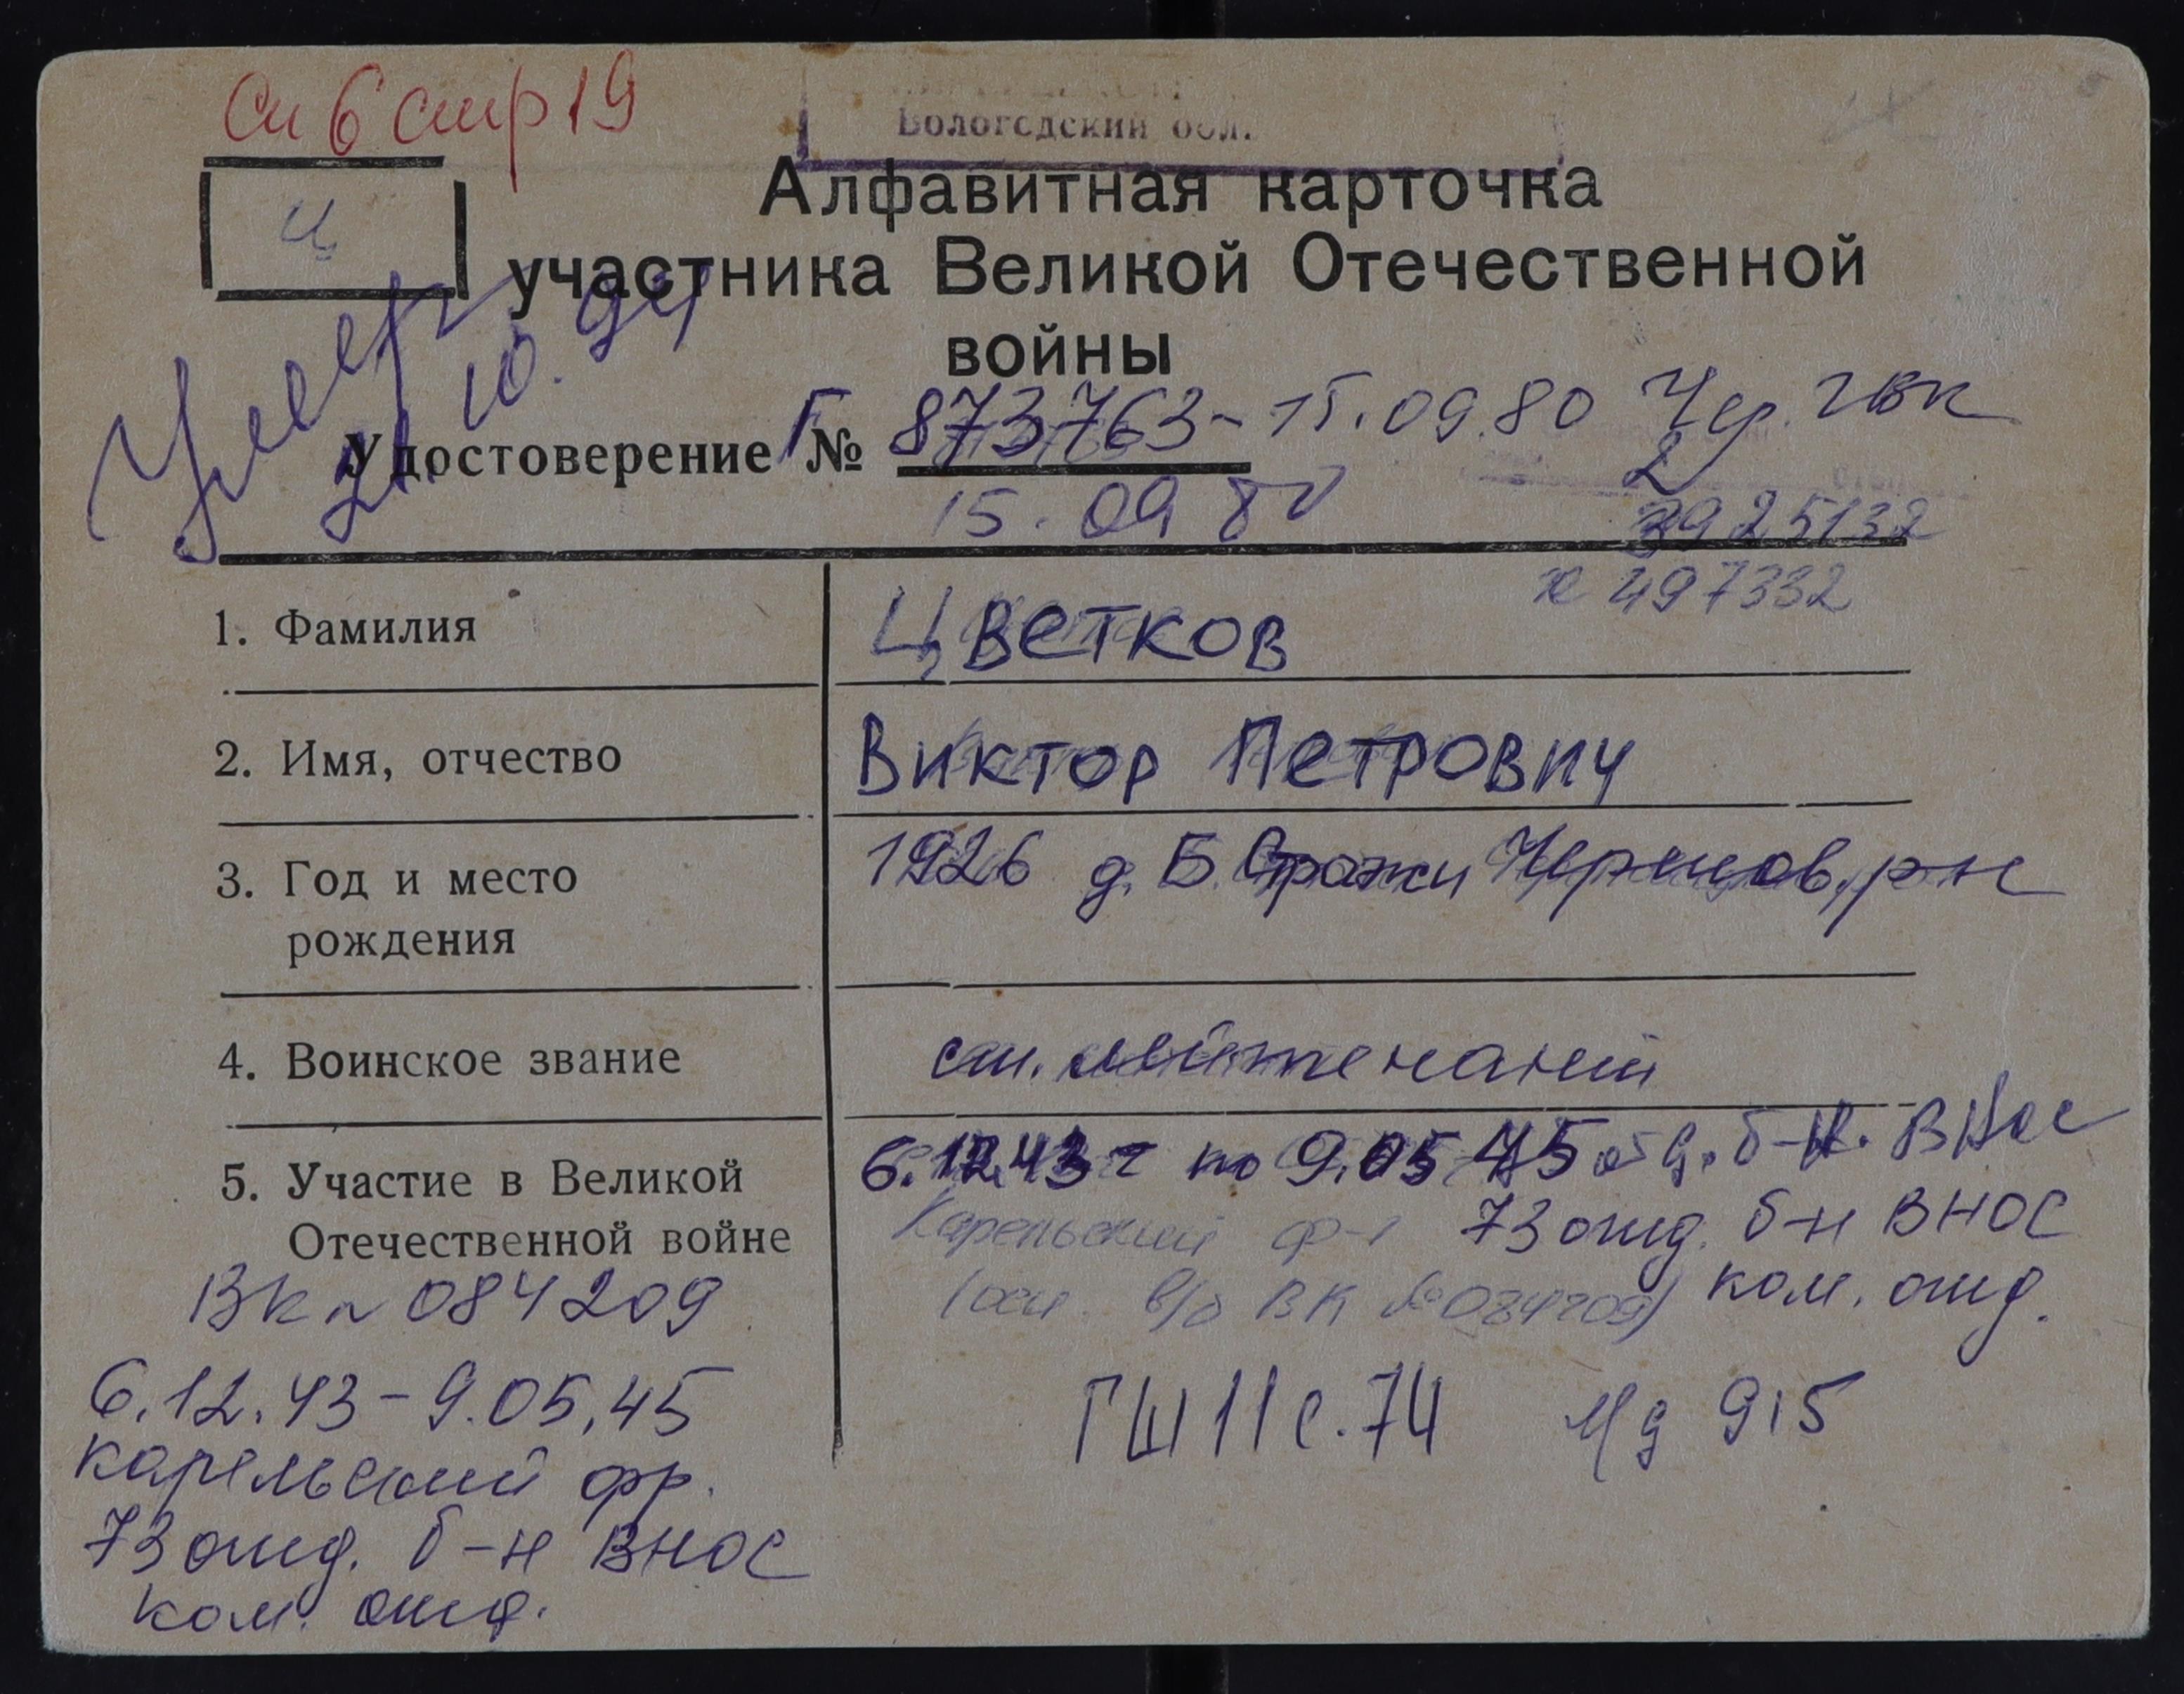 Сп 6 стр 19
Вологодский обл.
Ц
Алфавитная карточка
участника Великой Отечественной
войны
Умер
21. 10. 94
Удостоверение Г № 873763 - 15.09.80 Чер. ГВК
15.09 80
2
3925132
497332
1. Фамилия
Цветков
2. Имя, отчество
Виктор Петрович
3. Год и место
рождения
1926 д. Б. Стражи Черепов. р-н
4. Воинское звание
ст. лейтенант
5. Участие в Великой
Отечественной войне
6.12.43 г по 9.05 45 б-н. ВНос
Карельский ф-т 73 отд. б-н ВНОС
в/б ВК № 084209) ком. отд.
ВК № 084209
6.12.43 - 9.05.45
карельский фр.
73 отд. б-н ВНОС
ком. отд.
ГШ 11 с. 74